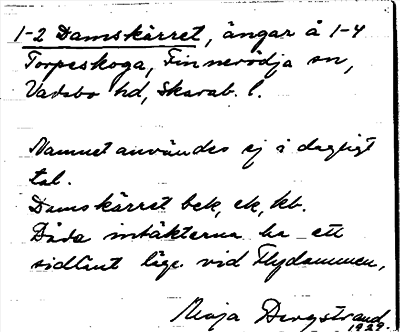 1-2 Damskärret, ängar å 1-4
Torpeskoga, Finnerödja sn,
Vadsbo hd, Skarab. l.
Namnet användes ej i dagligt
tal.
Damskärret bek, ek, kb.
Båda intäkterna ha ett
sidlänt läge vid Flydammen.
Maja Bergstrand
1929.